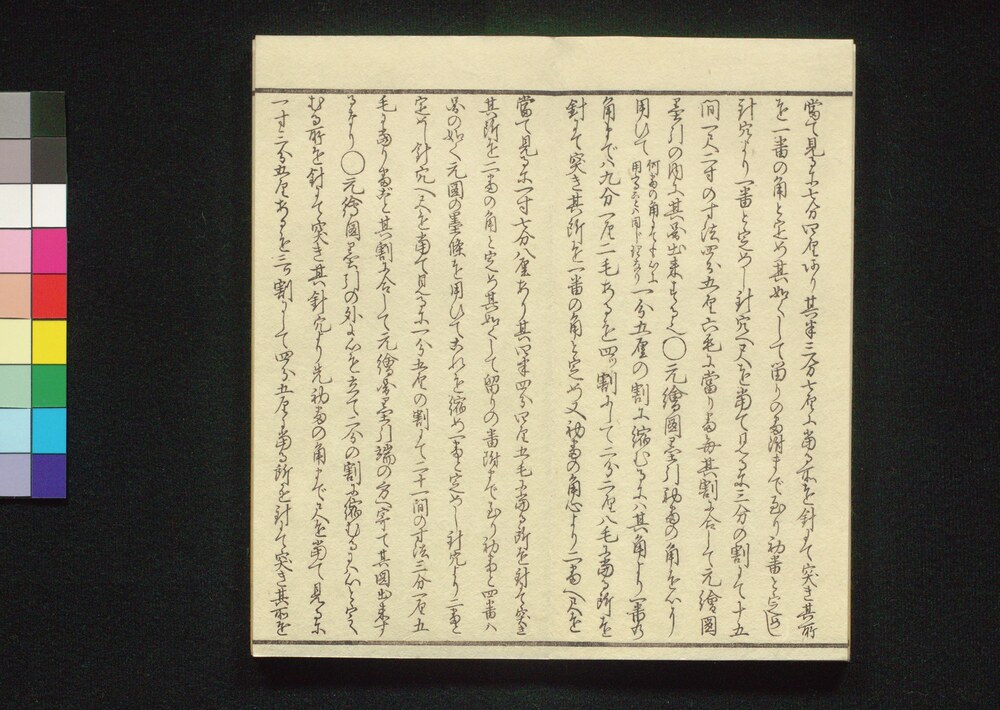 當て見るに七分四厘あり其半三分七厘に當る所を針にて突き其所
を一番の角と定め其如くして留りの番附まて至り初番と定めし
針穴より一番と定めし針穴へ尺を當て見るに三分の割にて十五
間一尺二寸の寸法四分五厘六毛に當り毎其割に合して元繪圖
墨引の内に其圖出来する也〇元繪圖墨引初番の角を心に
用ひて
一分五厘の割に縮むるには其角より一番の
角まで八九分一厘二毛あるを四ツ割にして二分二厘八毛に當る所を
針にて突き其所を一番の角と定め又初番の角心より二番へ尺を
當て見るに一寸七分八厘あり其四半四分四厘五毛に當る所を針にて突き
其所を二番の角と定め其如くして留りの番附まで至り初番と四番八
圖の如く元圖の墨條を用ひて是れを縮め一番と定めし針穴より二番と
定めし針穴へ尺を當て見るに一分五厘の割にて二十一間の寸法三分一厘五
毛に當り番ごと其割に合して元繪圖墨引端の方へ寄て其圖出来す
るなり〇元繪圖墨引の外に心を立て二分の割に縮むるには心と定
むる所を針にて突き其針穴より先初番の角まで尺を當て見るに
一寸三分五厘あるを三ツ割にして四分五厘に當る所を針にて突き其所を